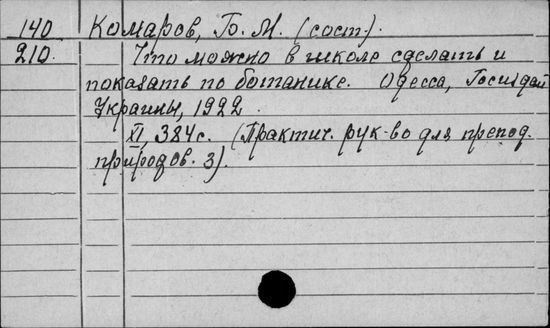 140
210.
Комаров, Б. М. (сост.).
Что можно в школе сделать и
показать по ботанике. Одесса, Госиздат
Украины, 1922.
XI, 384 с. (Практич. рук-во для препод.
природов. 3).